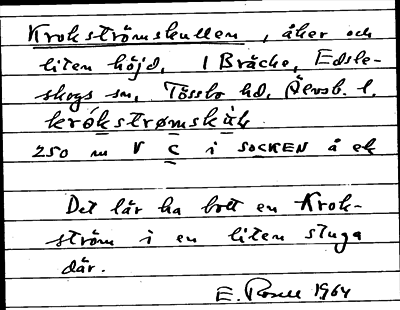 Krokströmskullen, åker och
liten höjd, 1 Bräcke, Edsle-
skogs sn, Tössbo hd, Älvsb. l.
krókstrømskùlr
250 m V C i SOCKEN å ek
Det lär ha bott en Krok-
ström i en liten stuga
där.
E. Rosell 1964